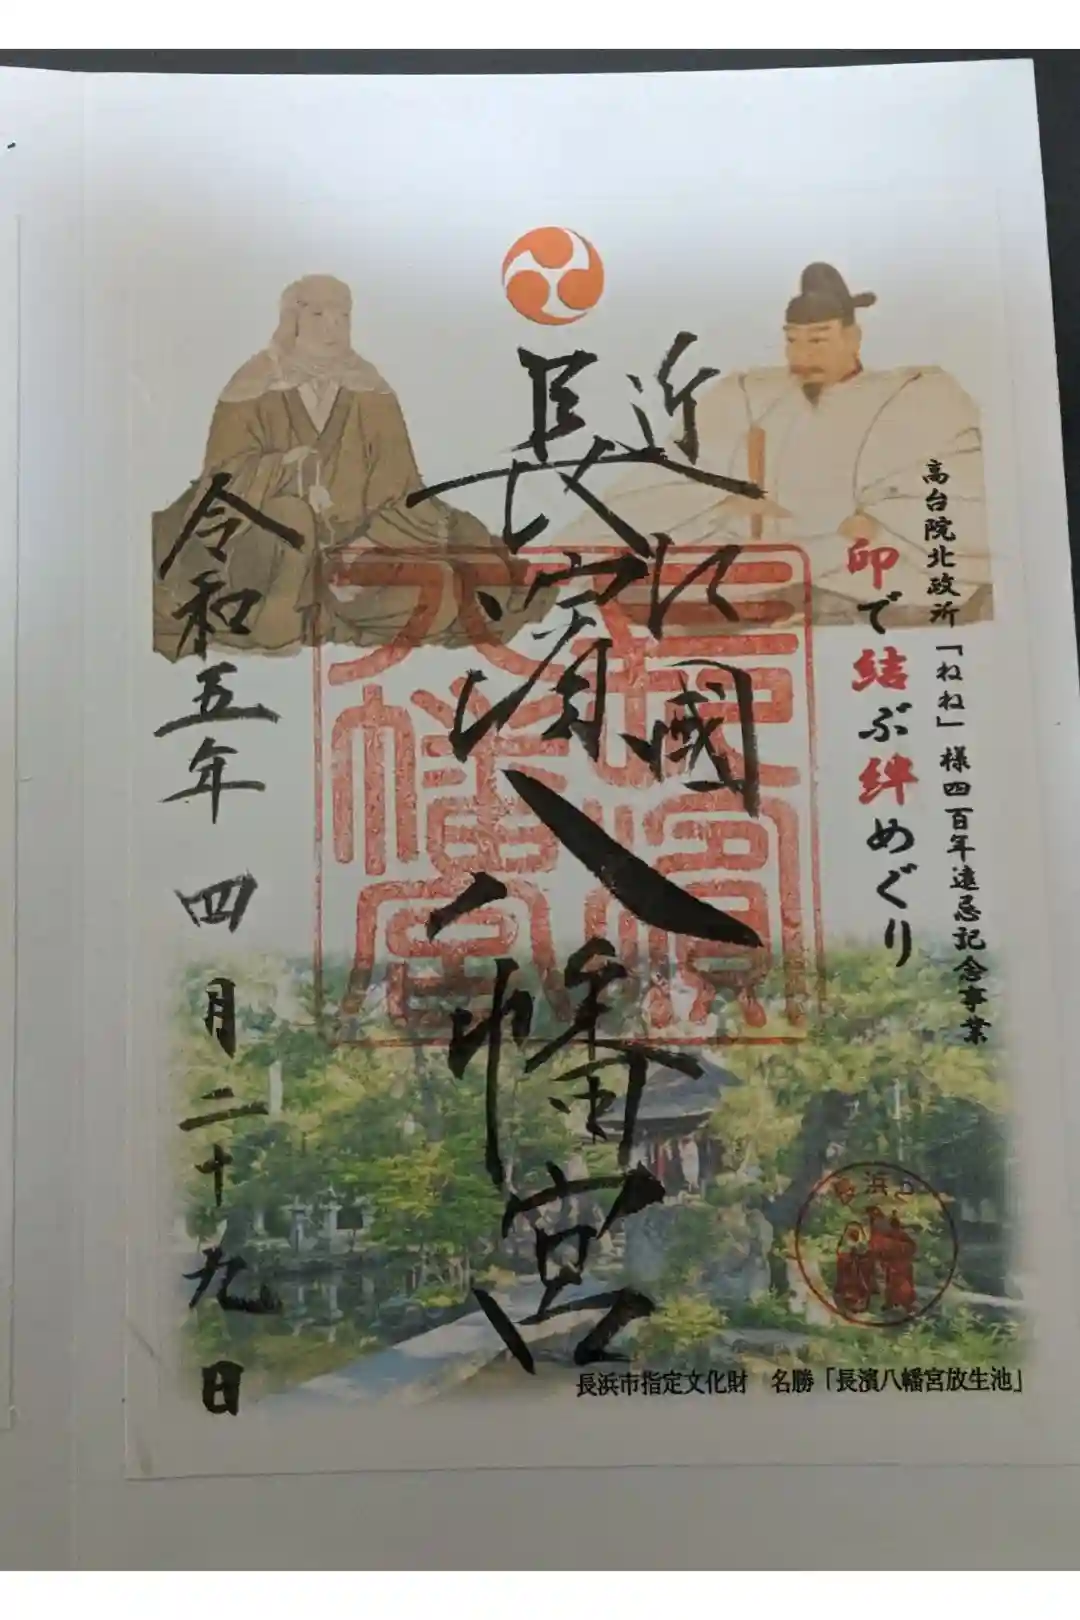 高台院北政所「ねね」様四百年遠忌記念事業
印で結ぶ絆めぐり
近江國
長濱八幡宮
長濱八幡宮
令和五年 四月二十九日
長浜市指定文化財 名勝「長濱八幡宮放生池」